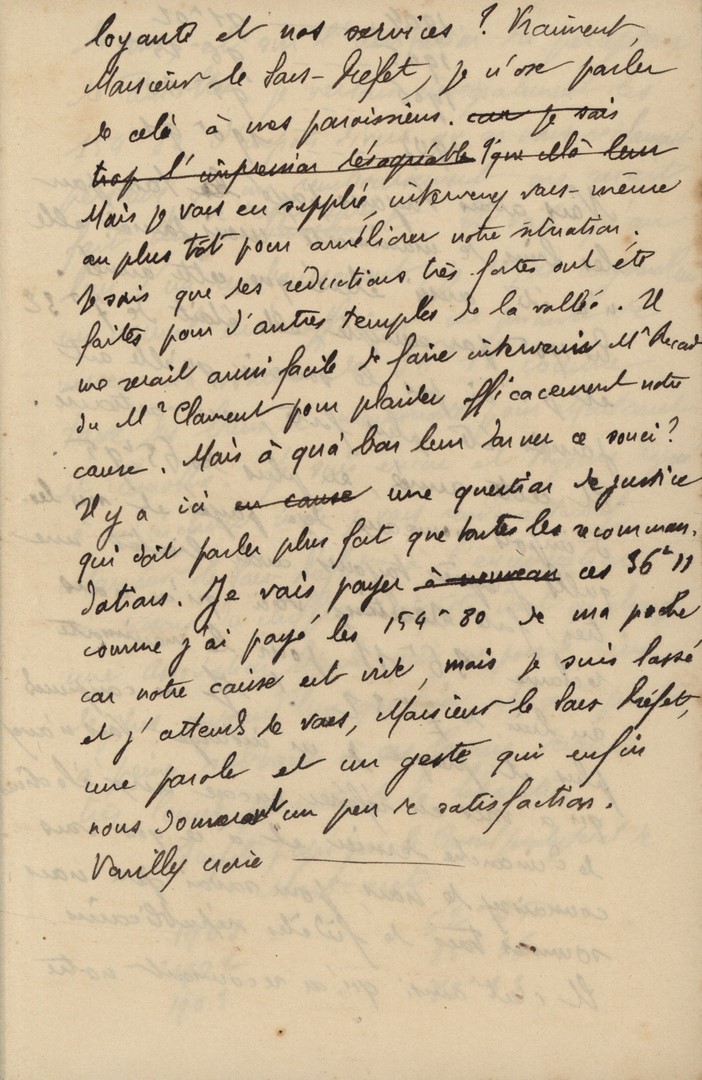 loyauté et nos services ? Vraiment,
Monsieur le Sous-Préfet, je n'ose parler
de celà à mes paroissiens. car je sais
trop l'impression désagréable que celà leur
Mais je vous en supplie, intervenez vous-même
au plus tôt pour améliorer notre situation.
Je sais que des réductions très fortes ont été
faites pour d'autres temples de la vallée. Il
me serait aussi facile de faire intervenir Mr
ou Mr Clament pour plaider efficacement notre
cause. Mais à quoi bon leur donner ce souci ?
Il y a ici en cause une question de justice
qui doit parler plus fort que toutes les recomman-
dations. Je vais payer à nouveau ces 36 f 11
comme j'ai payé les 154 f 80 de ma poche
car notre caisse est vide, mais je suis lassé
et j'attends de vous, Monsieur le Sous Préfet,
une parole et un geste qui enfin
nous donneront un peu de satisfaction.
Veuillez croire